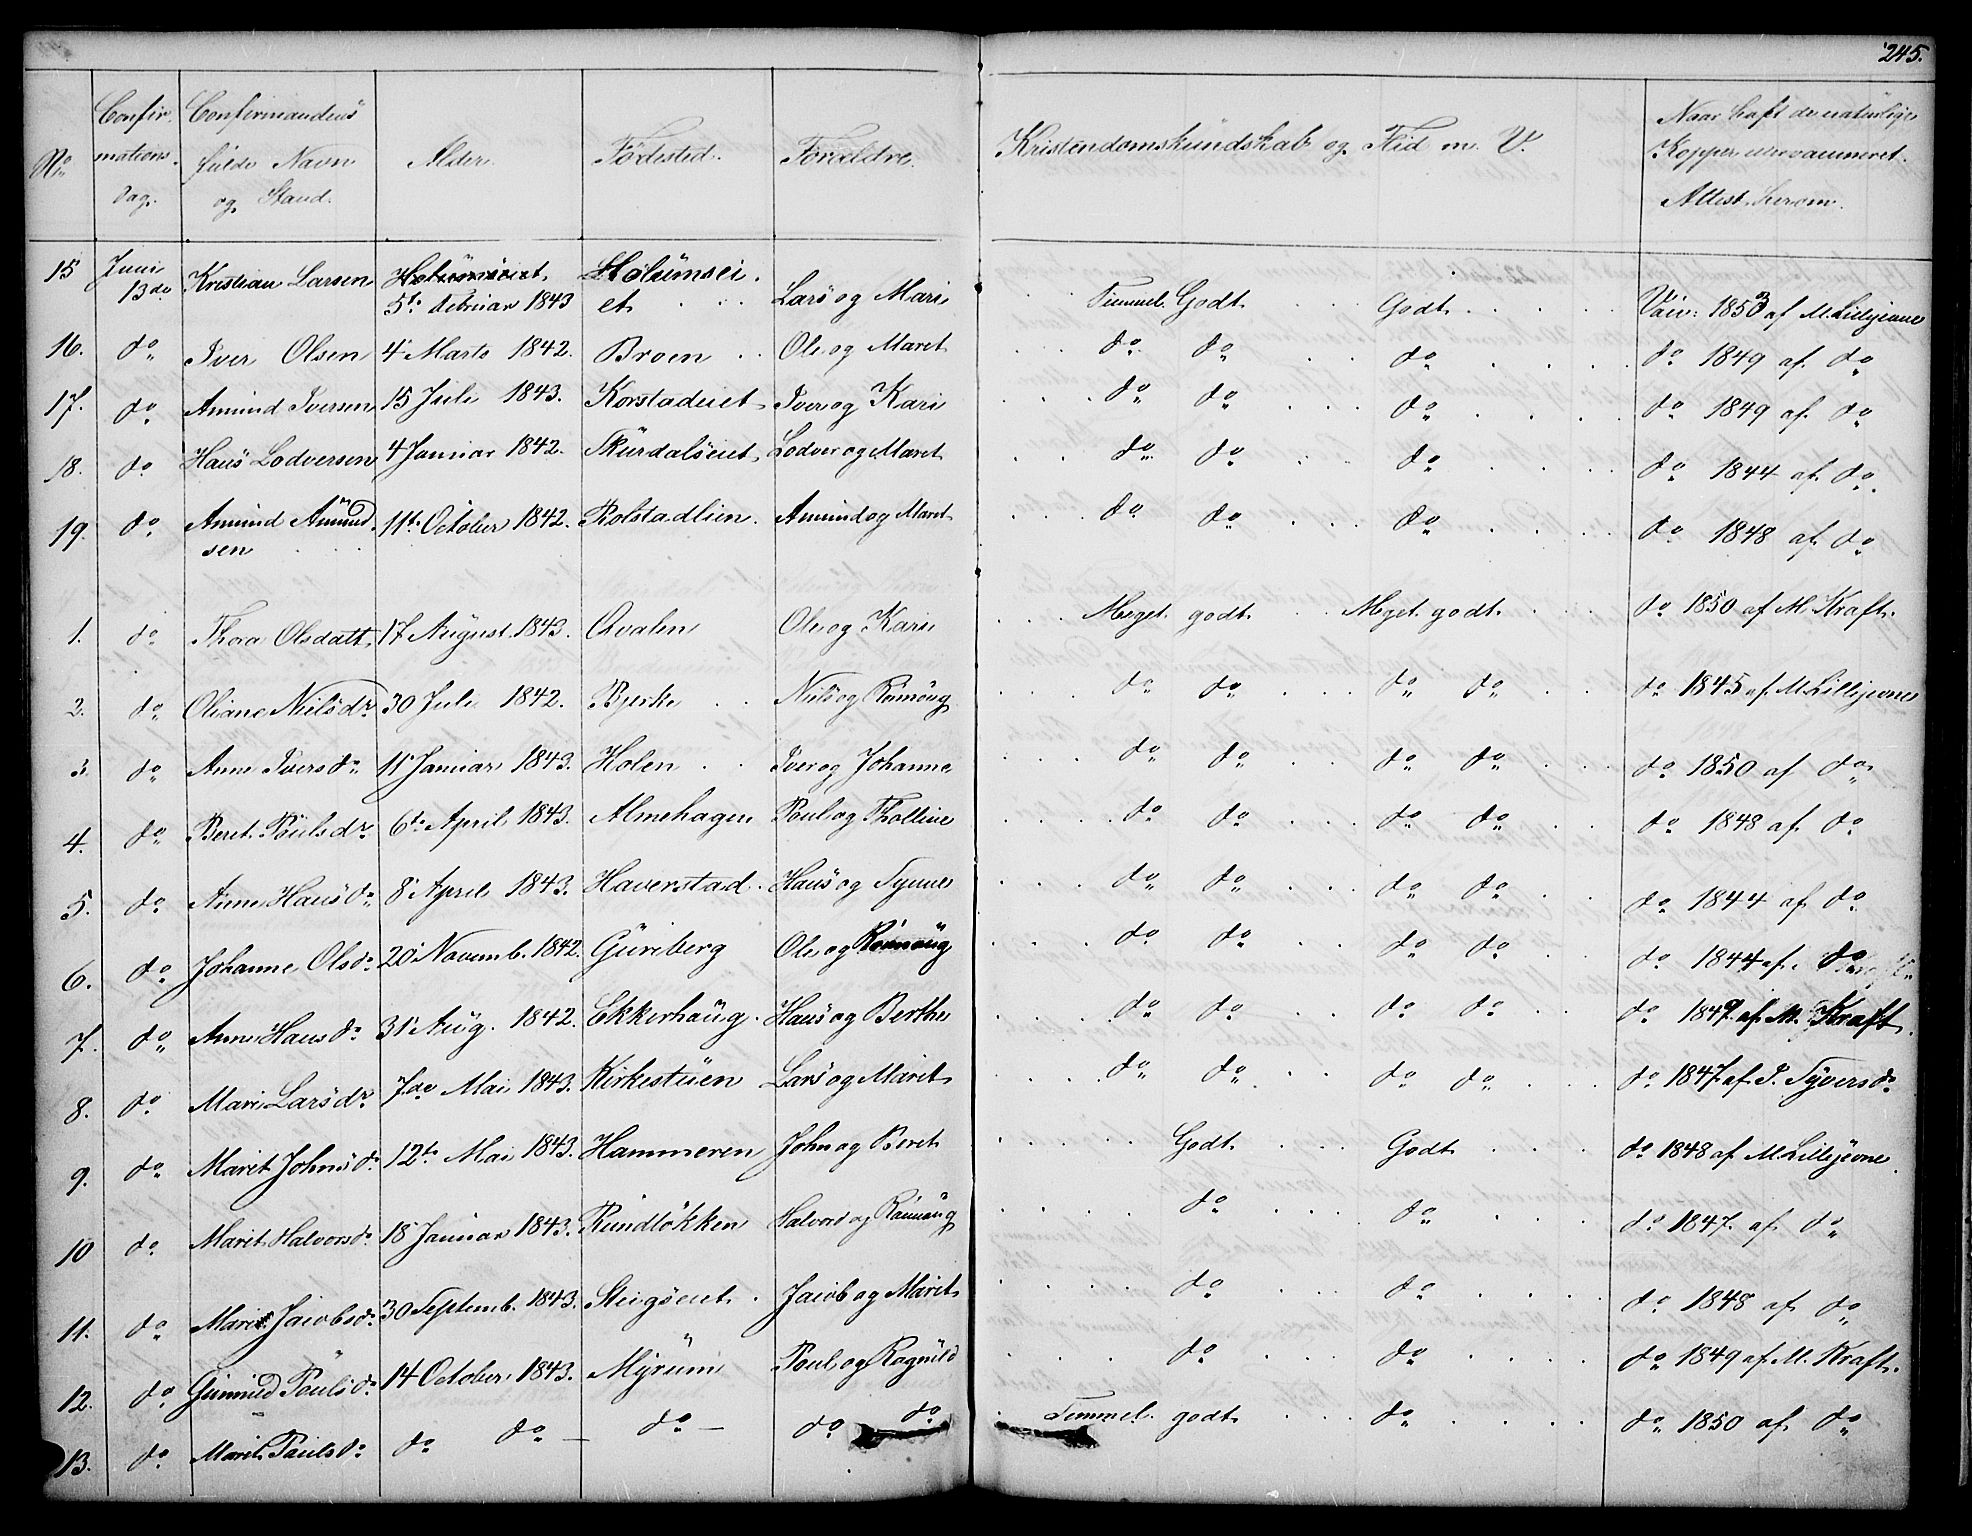 245.
No Confirmations Dag. Confirmandens fulde Navn og Stand. Alder. Fødested. Forældre. Kristendomskundskab og Flid m. V. Naar haft de naturlige Kopper eller vaccineret. Attest herom.
15 Juni 13de Kristian Larsen 5te Februar 1843 Holümsei et Lars og Mari Temmel. Godt Godt Vaic: 1853 af M. Lillejevne
16. do Iver Olsen 4 Marts 1842. Broen Ole og Maret do do do do 1849 af do
17. do Amund Iversen 15 Juli 1843. Korstadeiet Iver og Kari do do do do 1849 af do
18. do Hans Lodversen 4 Januar 1842. Skurdalseiet Lodver og Maret do do do do 1844 af do
19. do Amund Amundsen 11te October 1842. Rolstadlien Amund og Maret do do do do 1848 af do
1. do Thora Olsdatt. 17 August 1843. Qvalen Ole og Kari Meget godt Meget godt do 1850 af M. Kraft.
2. do Oliane Nielsdr. 30 Juli 1842. Bjerke Niels og Rønnøug do do do do do 1845 af M. Lillejevne
3. do Anne Iversdr 11 Januar 1843. Holen Iver og Johanne do do do do do 1850 af do
4. do Beret Pöulsdr. 6te April 1843. Almehagen Poul og Tholline do do do do do 1848 af do
5. do Anne Hansdr 8 April 1843. Haverstad Hans og Synne do do do do do 1844 af do
6. do Johanne Olsdr 20 Novemb. 1842. Güriberg Ole og Rønnøug do do do do do 1844 af do
7. do Anne Hansdr 31 Aug. 1842. Ekkerhaüg Hans og Berthe do do do do do 1849 af M. Kraft
8. do Mari Larsdr. 7de Mai 1843. Kirkestüen Lars og Marit do do do do do 1847 af P. Syversdr
9. do Marit Johnsdr 12te Mai 1843. Hammeren John og Beret Godt Godt do 1848 af M. Lillejevne
10 do Marit Halvorsdr 18 Januar 1843. Rundløkken Halvord og Rønnaug do do do 1847 af do
11. do Mari Jacobsdr 30 Septemb. 1843. Steigseiet Jacob og Marit do do do 1848 af do
12. do Gunnild Poulsdr 14 October 1843. Myrüm Poul og Ragnild do do do 1849 af M. Kraft.
13. do Marit Paulsdr do do — do — do do Temmel. godt do do 1850 af do